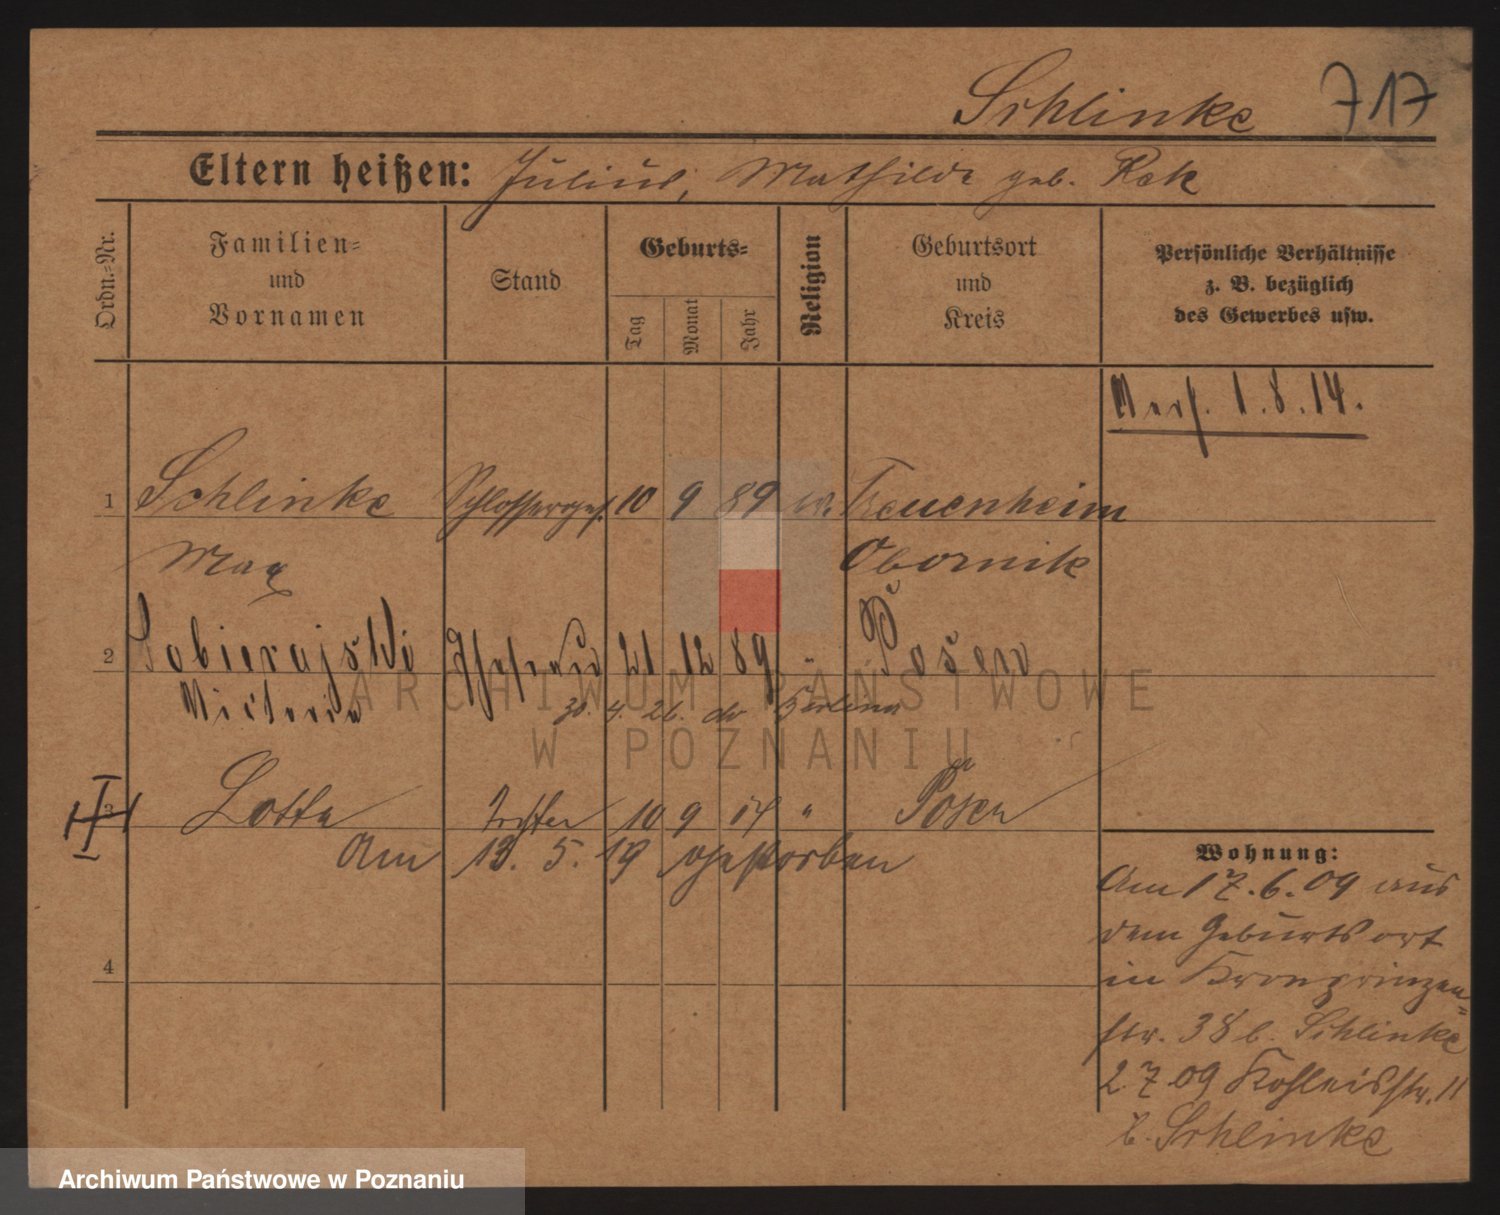 Schlinke 717
Eltern heißen: Julius, Mathilde geb. Rek
Ordn.-Nr.
Familien-
und
Vornamen
Stand
Geburts-
Tag
Monat
Jahr
Religion
Geburtsort
und
Kreis
Persönliche Verhältnisse
z. B. bezüglich
des Gewerbes usw.
1.8.14.
1 Schlinke Schlosserges. 10 9 89 Treuenheim
Max Obornik
2 Sobierajski Ehefrau 21 12 89 " Posen
Victoria
30. 4. 26.
3 Lotte Tochter 10 9 14 " Posen
Am 13. 5. 19 gestorben
4
Wohnung:
Am 17.6.09 aus
dem Geburtsort
in Kronprinzen-
str. 38 b. Schlinke
2.7.09 Kohleisstr. 11
b. Schlinke
ARCHIWUM PAŃSTWOWE
W POZNANIU
Archiwum Państwowe w Poznaniu